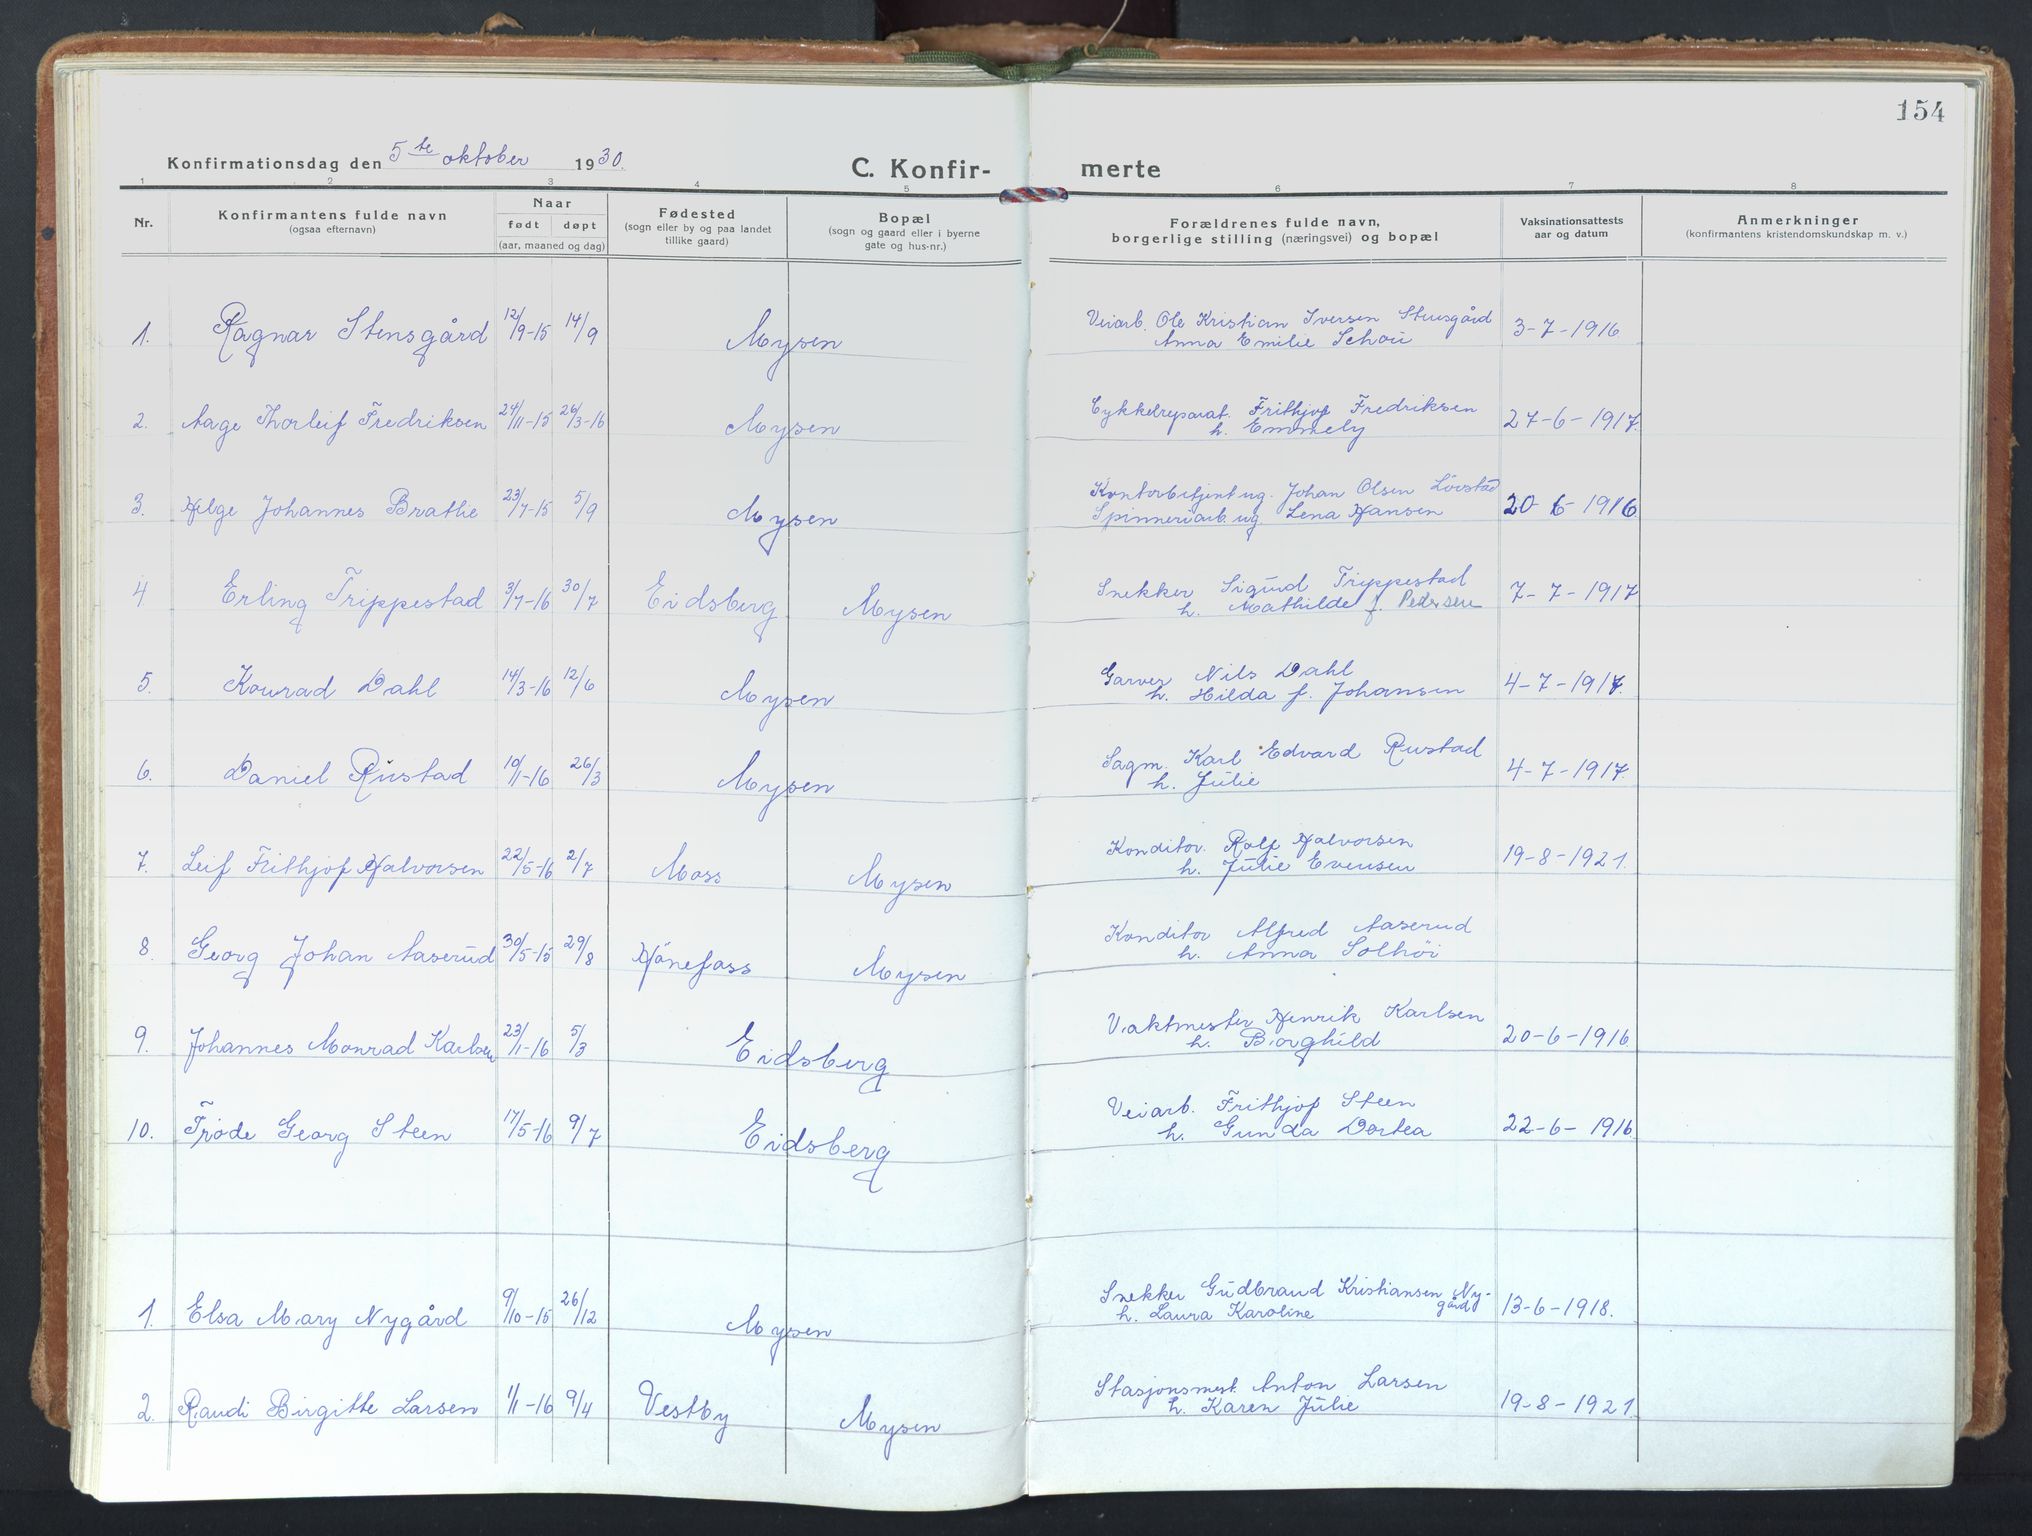 154
Konfirmationsdag den 5te oktober 1930.
C. Konfir- merte
1 2 3 4 5 6 7 8
Nr.
Konfirmantens fulde navn
(ogsaa efternavn)
Naar
født døpt
(aar, maaned og dag)
Fødested
(sogn eller by og paa landet
tillike gaard)
Bopæl
(sogn og gaard eller i byerne
gate og hus-nr.)
Forældrenes fulde navn,
borgerlige stilling (næringsvei) og bopæl
Vaksinationsattests
aar og datum
Anmerkninger
(konfirmantens kristendomskundskap m. v.)
1. Ragnar Stensgård 12/9-15 14/9 Mysen Veiarb. Ole Kristian Iversen Stensgård 3-7-1916.
Anna Emilie Schou
2. Aage Thorleif Fredriksen 24/11-15 26/3-16 Mysen Cykkelreparat. Frithjof Fredriksen 27-6-1917.
h. Emmely
3. Helge Johannes Brathe 23/7-15 5/9 Mysen Kontorbetjent ug. Johan Olsen Lövstad 20-6-1916
Spinneriarb. ug. Lena Hansen
4 Erling Trippestad 3/7-16 30/7 Eidsberg Mysen Snekker Sigurd Trippestad 7-7-1917
h. Mathilde f. Pedersen
5. Konrad Dahl 14/3-16 12/6 Mysen Garver Nils Dahl 4-7-1917.
h. Hilda f. Johansen
6. Daniel Rustad 10/1-16 26/3 Mysen Sagm. Karl Edvard Rustad 4-7-1917.
h. Julie
7. Leif Frithjof Halvorsen 22/5-16 2/7 Moss Mysen Konditor. Rolf Halvorsen 19-8-1921.
h. Julie Evensen
8. Georg Johan Aaserud 30/5-15 29/8 Hönefoss Mysen Konditor Alfred Aaserud
h. Anna Solhöi
9. Johannes Monrad Karlsen 23/1-16 5/3 Eidsberg Vaktmester Henrik Karlsen 20-6-1916
h. Borghild
10. Frode Georg Steen 17/5-16 9/7 Eidsberg Veiarb. Frithjof Steen 22-6-1916.
h. Gunda Dortea
1. Elsa Mary Nygård 9/10-15 26/12 Mysen Snekker Gudbrand Kristiansen Ny-
gård 13-6-1918.
h. Laura Karoline
2. Randi Birgitte Larsen 1/1-16 9/4 Vestby Mysen Stasjonsmest. Anton Larsen 19-8-1921.
h. Karen Julie